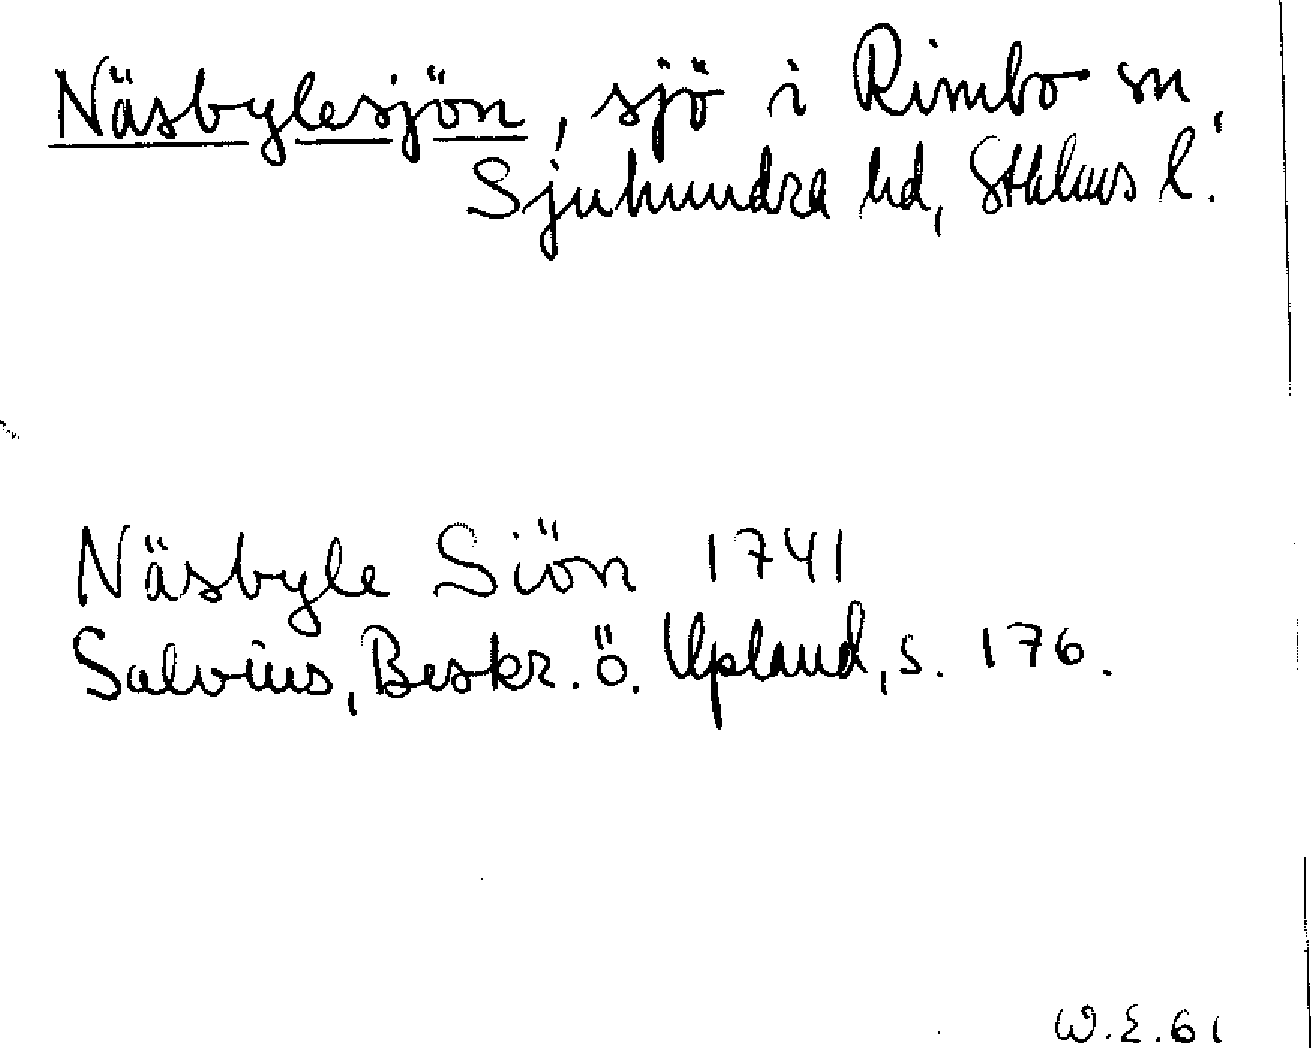 Näsbylesjön, sjö i Rimbo sn,
Sjuhundra hd, Sthlms l.
Näsbyle Siön 1741
Salvius, Beskr. ö. Upland, s. 176.
W.E.61